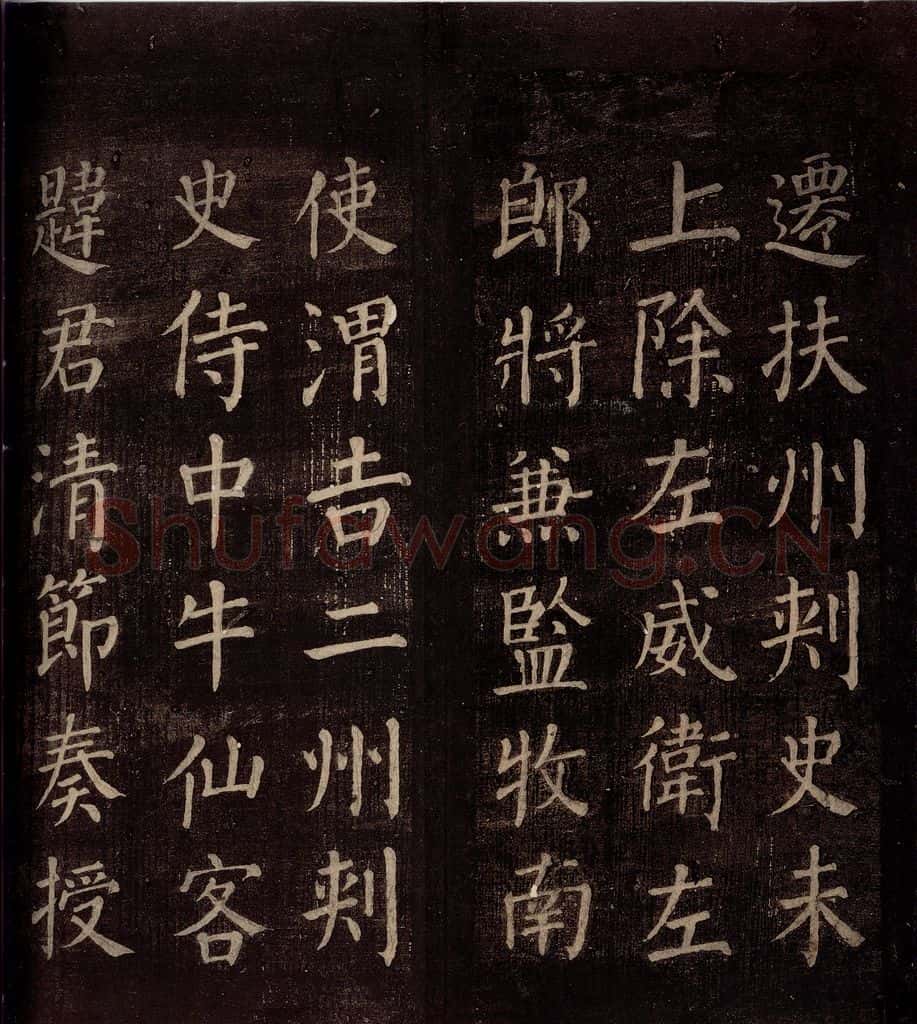 遷扶州刾史未
上除左威衛左
郎將兼監牧南
使渭吉二州刾
史侍中牛仙客
韙君清節奏授
Shufawang.CN